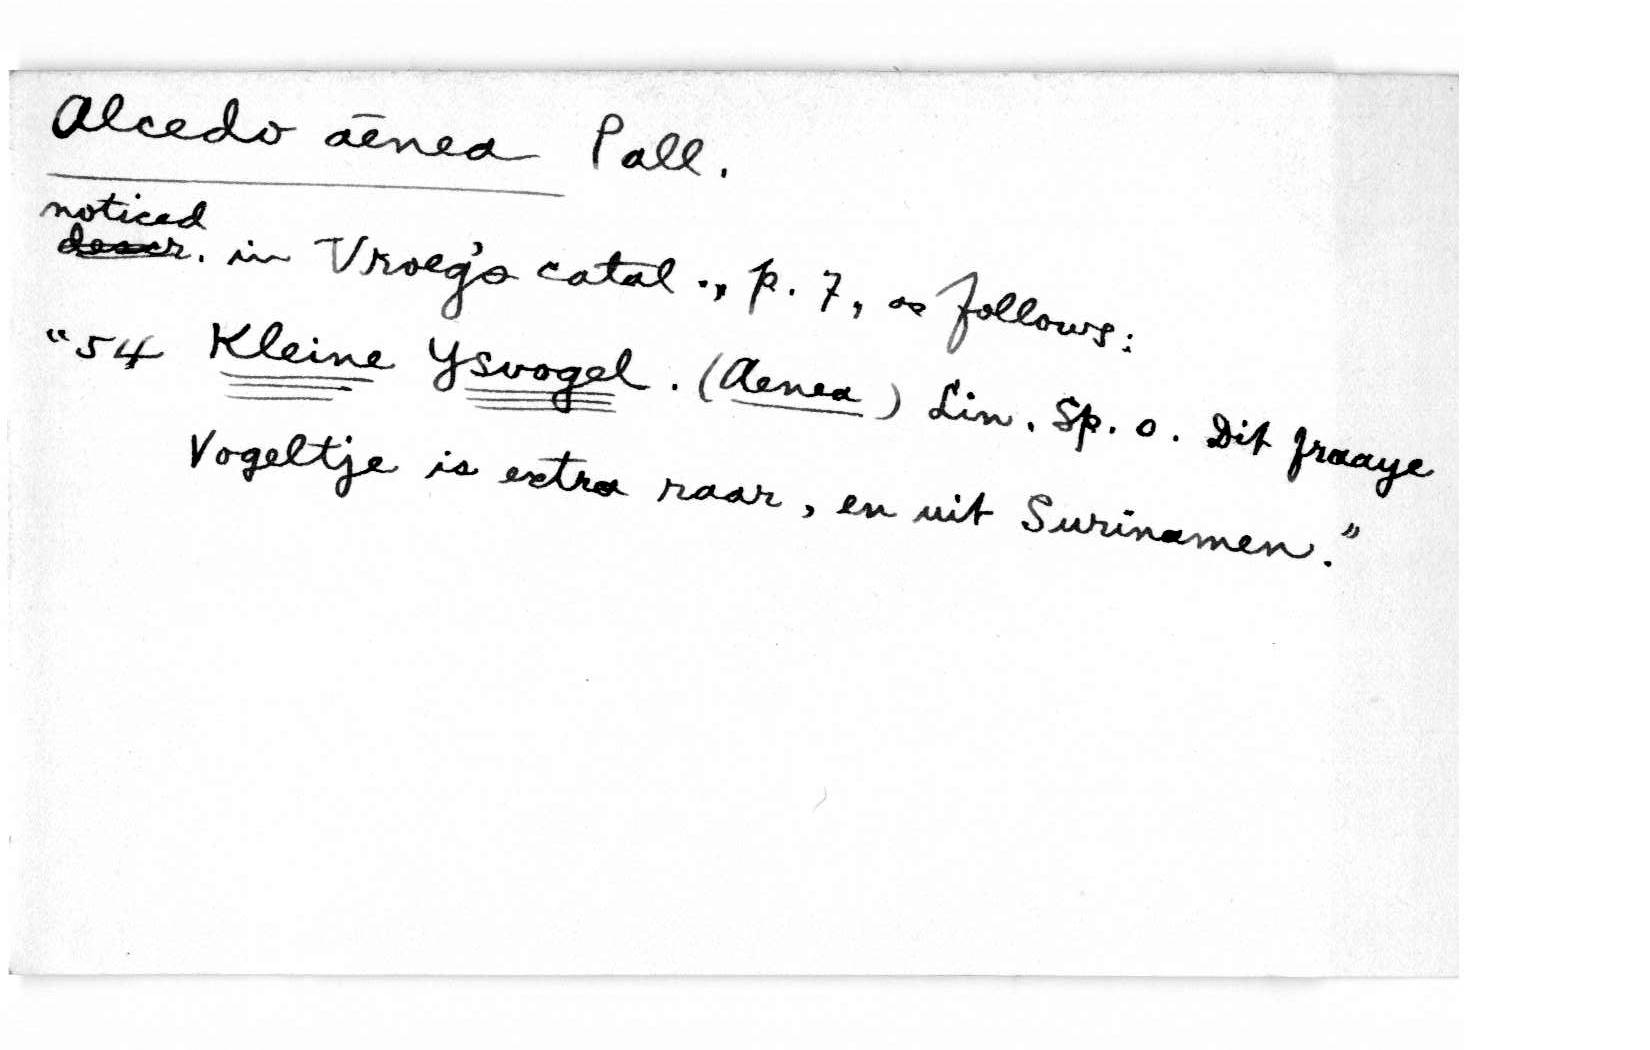 Alcedo aënea Pall.
noticed
descr. in Vroeg's catal., p. 7, as follows:
"54 Kleine Ysvogel. (Aenea) Lin. Sp. o. Dit fraaye
Vogeltje is extra raar, en uit Surinamen."